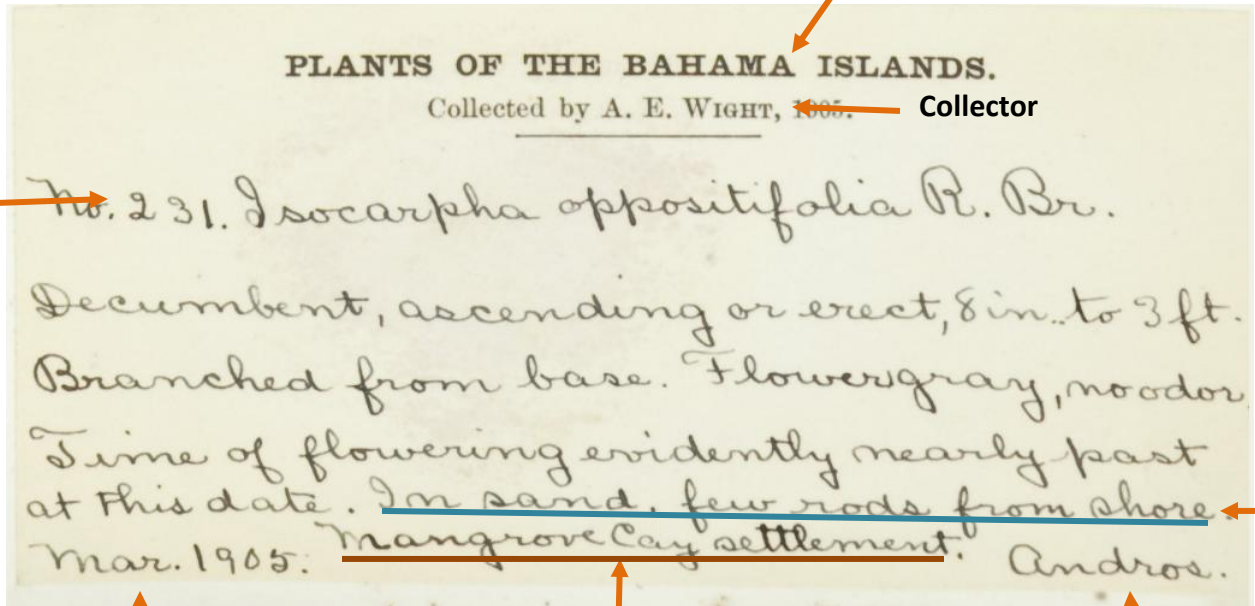 PLANTS OF THE BAHAMA ISLANDS.
Collected by A. E. WIGHT, 1905.
Collector
No. 231. Isocarpha oppositifolia R. Br.
Decumbent, ascending or erect, 8 in. to 3 ft.
Branched from base. Flower gray, no odor
Time of flowering evidently nearly past
at this date. In sand, few rods from shore.
Mar. 1905. Mangrove Cay settlement. Andros.